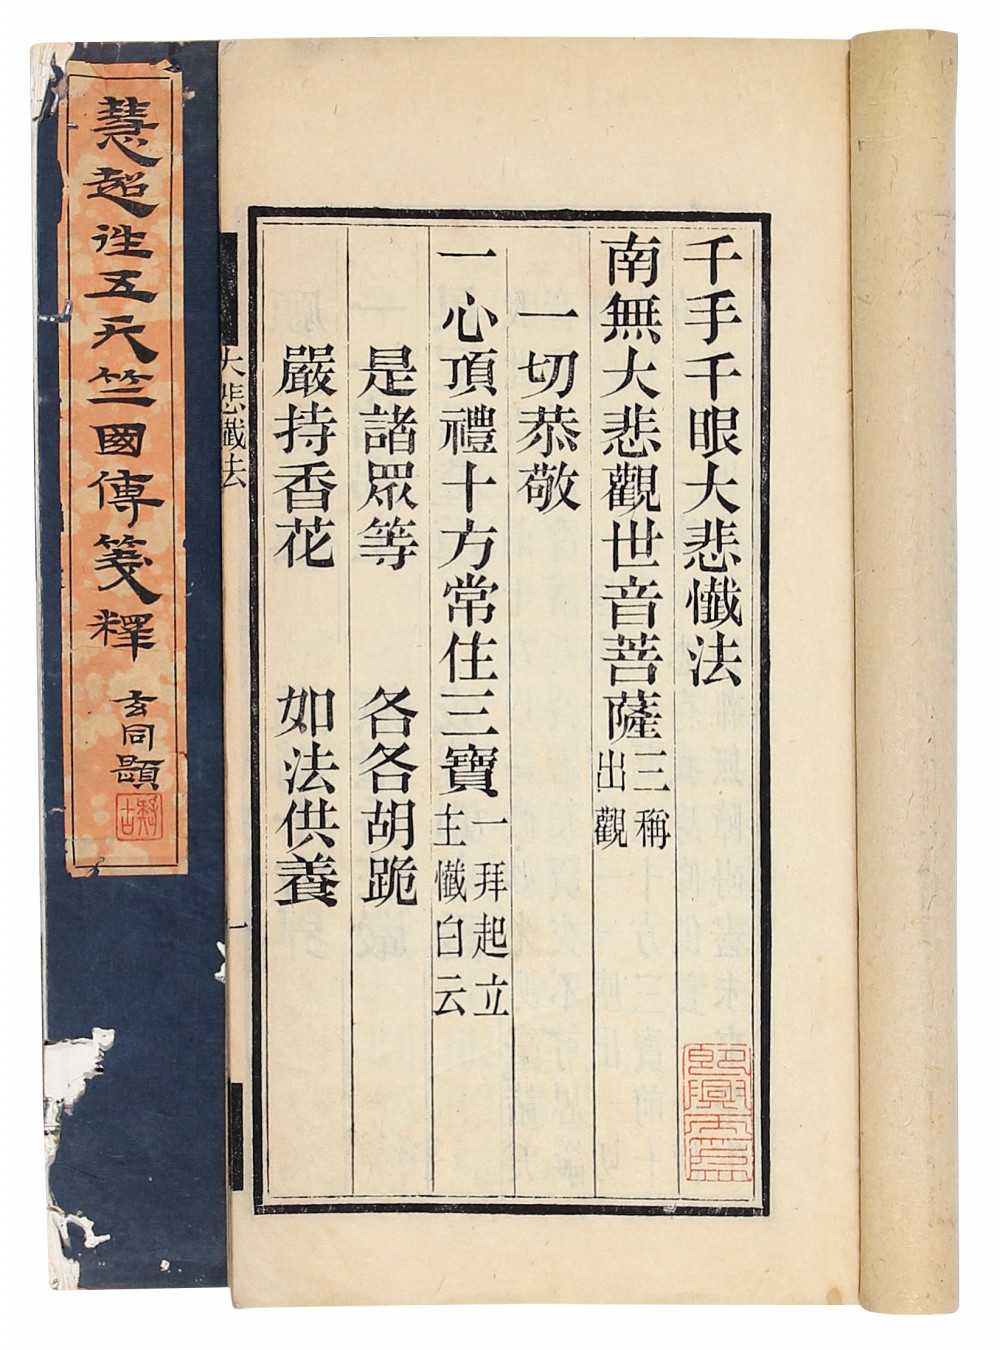 千手千眼大悲懺法
南無大悲觀世音菩薩三稱
出觀
一切恭敬
一心頂禮十方常住三寶一拜起立
主懺白云
是諸眾等 各各胡跪
嚴持香花 如法供養
大悲懺法
一
慧超往五天竺國傳箋釋
玄同題